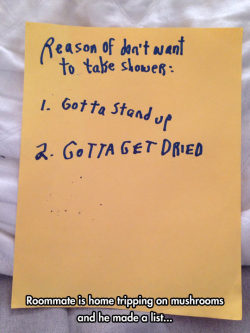 Reason of don't want
to take shower:
1. Gotta Stand up
2. GOTTA GET DRIED
Roommate is home tripping on mushrooms
and he made a list...